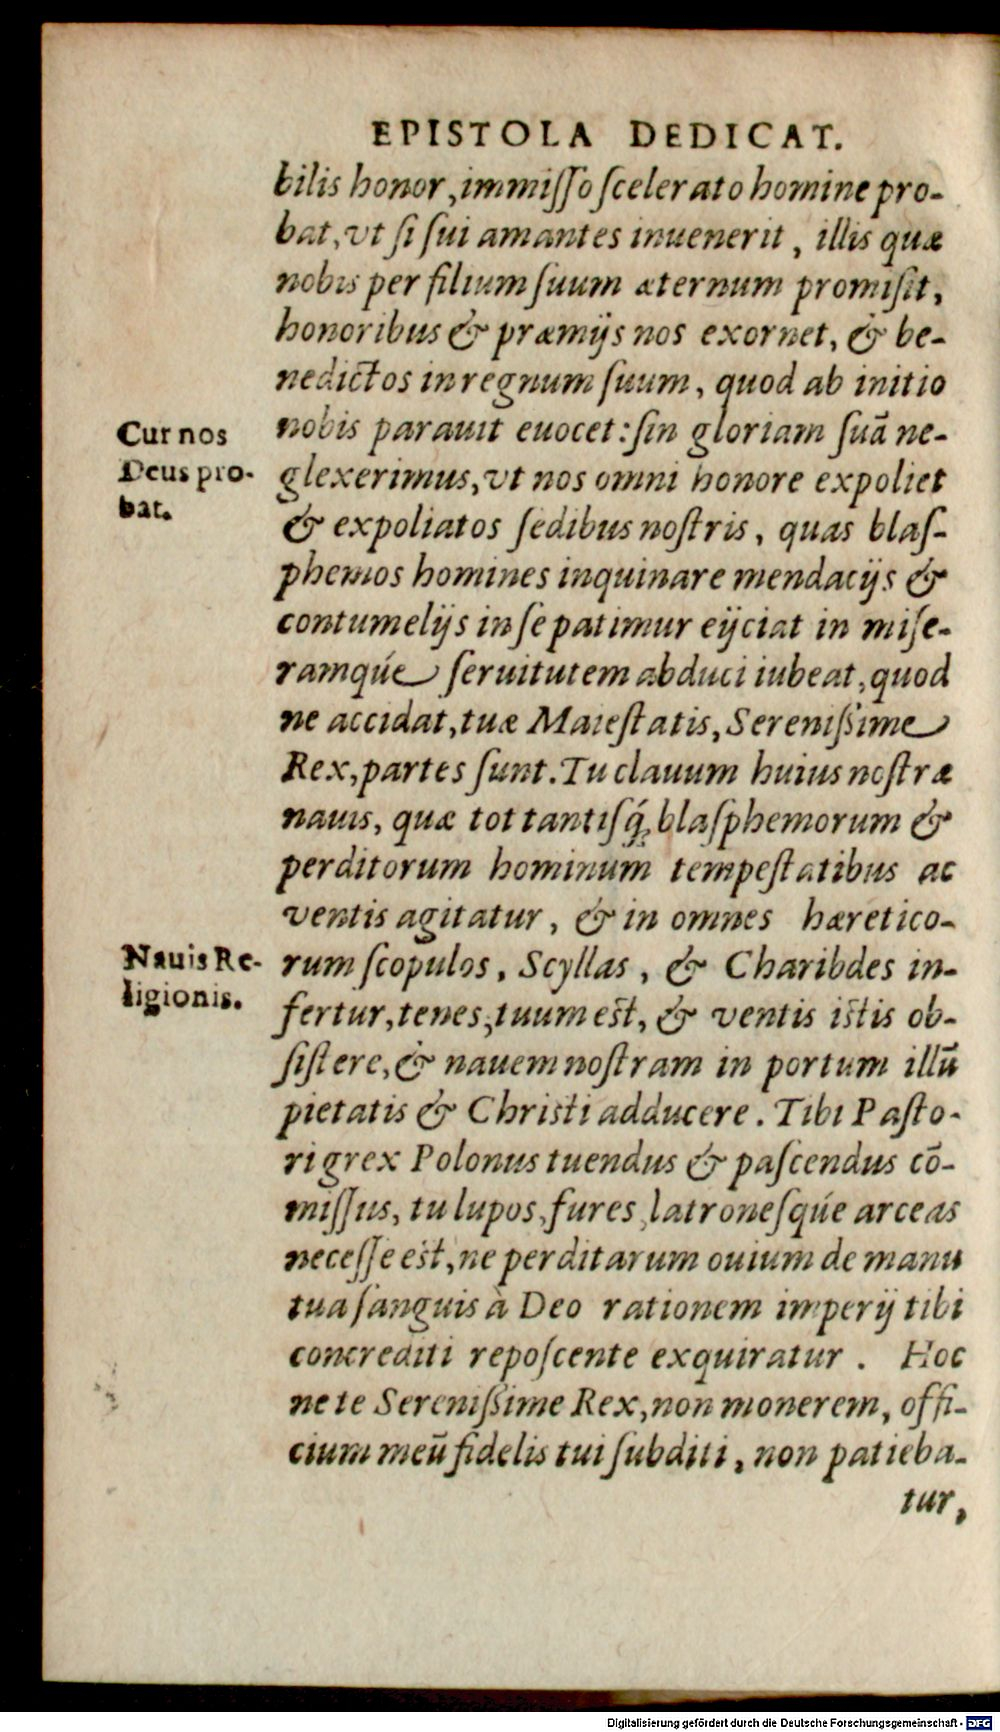 EPISTOLA DEDICAT.
bilis honor, immiſſo ſcelerato homine pro-
bat, vt ſi ſui amantes inuenerit, illis quæ
nobis per filium ſuum æternum promiſit,
honoribus & præmijs nos exornet, & be-
nedictos in regnum ſuum, quod ab initio
Cur nos
Deus pro-
bat.
nobis parauit euocet: ſin gloriam ſuã ne-
glexerimus, vt nos omni honore expoliet
& expoliatos ſedibus noſtris, quas blaſ-
phemos homines inquinare mendacijs &
contumelijs in ſe patimur eijciat in miſe-
ramqúe ſeruitutem abduci iubeat, quod
ne accidat, tuæ Maieſtatis, Sereniſſime
Rex, partes ſunt. Tu clauum huius noſtræ
nauis, quæ tot tantiſq́; blaſphemorum &
perditorum hominum tempeſtatibus ac
ventis agitatur, & in omnes hæretico-
Nauis Re-
ligionis.
rum ſcopulos, Scyllas, & Charibdes in-
fertur, tenes, tuum eſt, & ventis iſtis ob-
ſiſtere, & nauem noſtram in portum illũ
pietatis & Chriſti adducere. Tibi Paſto-
ri grex Polonus tuendus & paſcendus cõ-
miſſus, tu lupos, fures, latroneſqúe arceas
neceſſe eſt, ne perditarum ouium de manu
tua ſanguis à Deo rationem imperij tibi
concrediti repoſcente exquiratur. Hoc
ne te Sereniſſime Rex, non monerem, offi-
cium meũ fidelis tui ſubditi, non patieba-
tur,
Digitalisierung gefördert durch die Deutsche Forschungsgemeinschaft - DFG